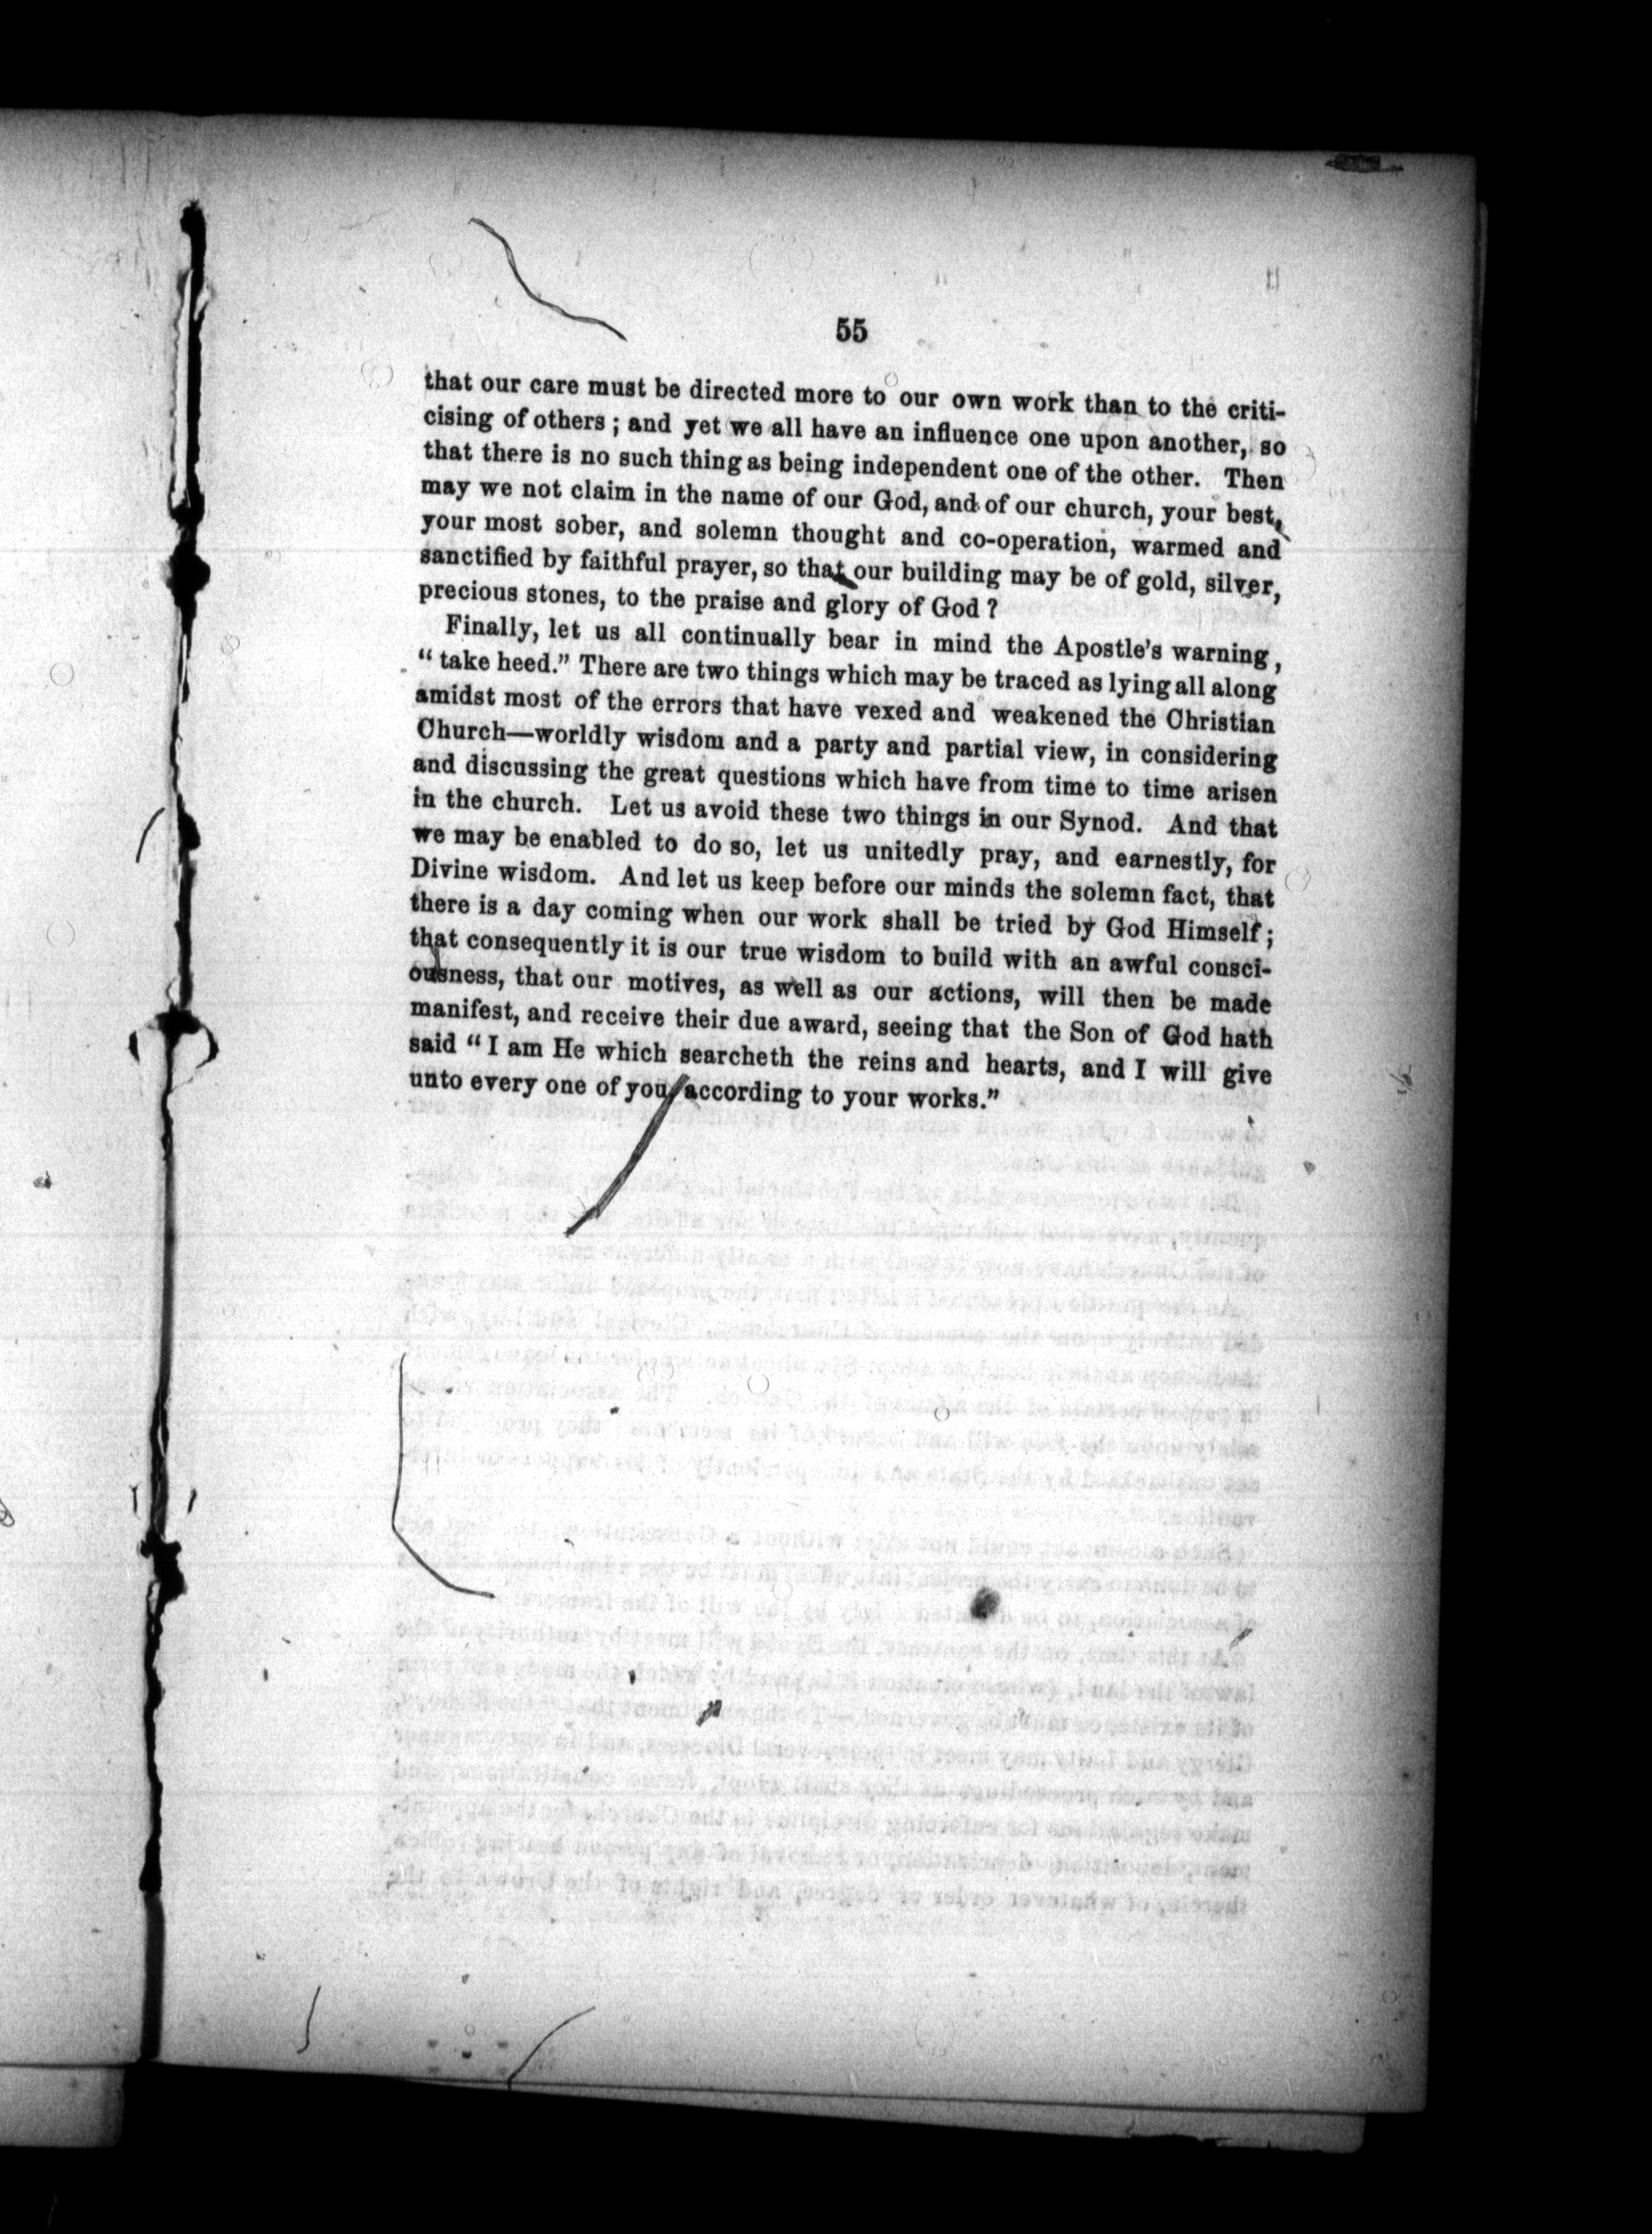 55
that our care must be directed more to our own work than to the criti-
cising of others ; and yet we all have an influence one upon another, so
that there is no such thing as being independent one of the other. Then
may we not claim in the name of our God, and of our church, your best,
your most sober, and solemn thought and co-operation, warmed and
sanctified by faithful prayer, so that our building may be of gold, silver,
precious stones, to the praise and glory of God ?
Finally, let us all continually bear in mind the Apostle's warning,
“ take heed.” There are two things which may be traced as lying all along
amidst most of the errors that have vexed and weakened the Christian
Church—worldly wisdom and a party and partial view, in considering
and discussing the great questions which have from time to time arisen
in the church. Let us avoid these two things in our Synod. And that
we may be enabled to do so, let us unitedly pray, and earnestly, for
Divine wisdom. And let us keep before our minds the solemn fact, that
there is a day coming when our work shall be tried by God Himself ;
that consequently it is our true wisdom to build with an awful consci-
ousness, that our motives, as well as our actions, will then be made
manifest, and receive their due award, seeing that the Son of God hath
said “ I am He which searcheth the reins and hearts, and I will give
unto every one of you according to your works.”